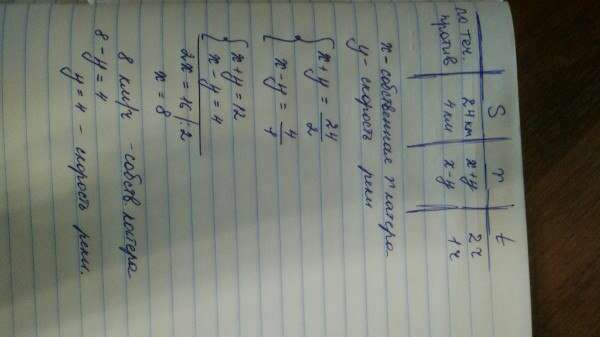 S v t
по теч. 24 км x+y 2ч
против 4 км x-y 1ч
x - собственная v катера
y - скорость реки
{ x+y = 24/2
x-y = 4/1
{ x+y = 12
x-y = 4
2x = 16 |:2
x = 8
8 км/ч - собств. катера
8 - y = 4
y = 4 - скорость реки.